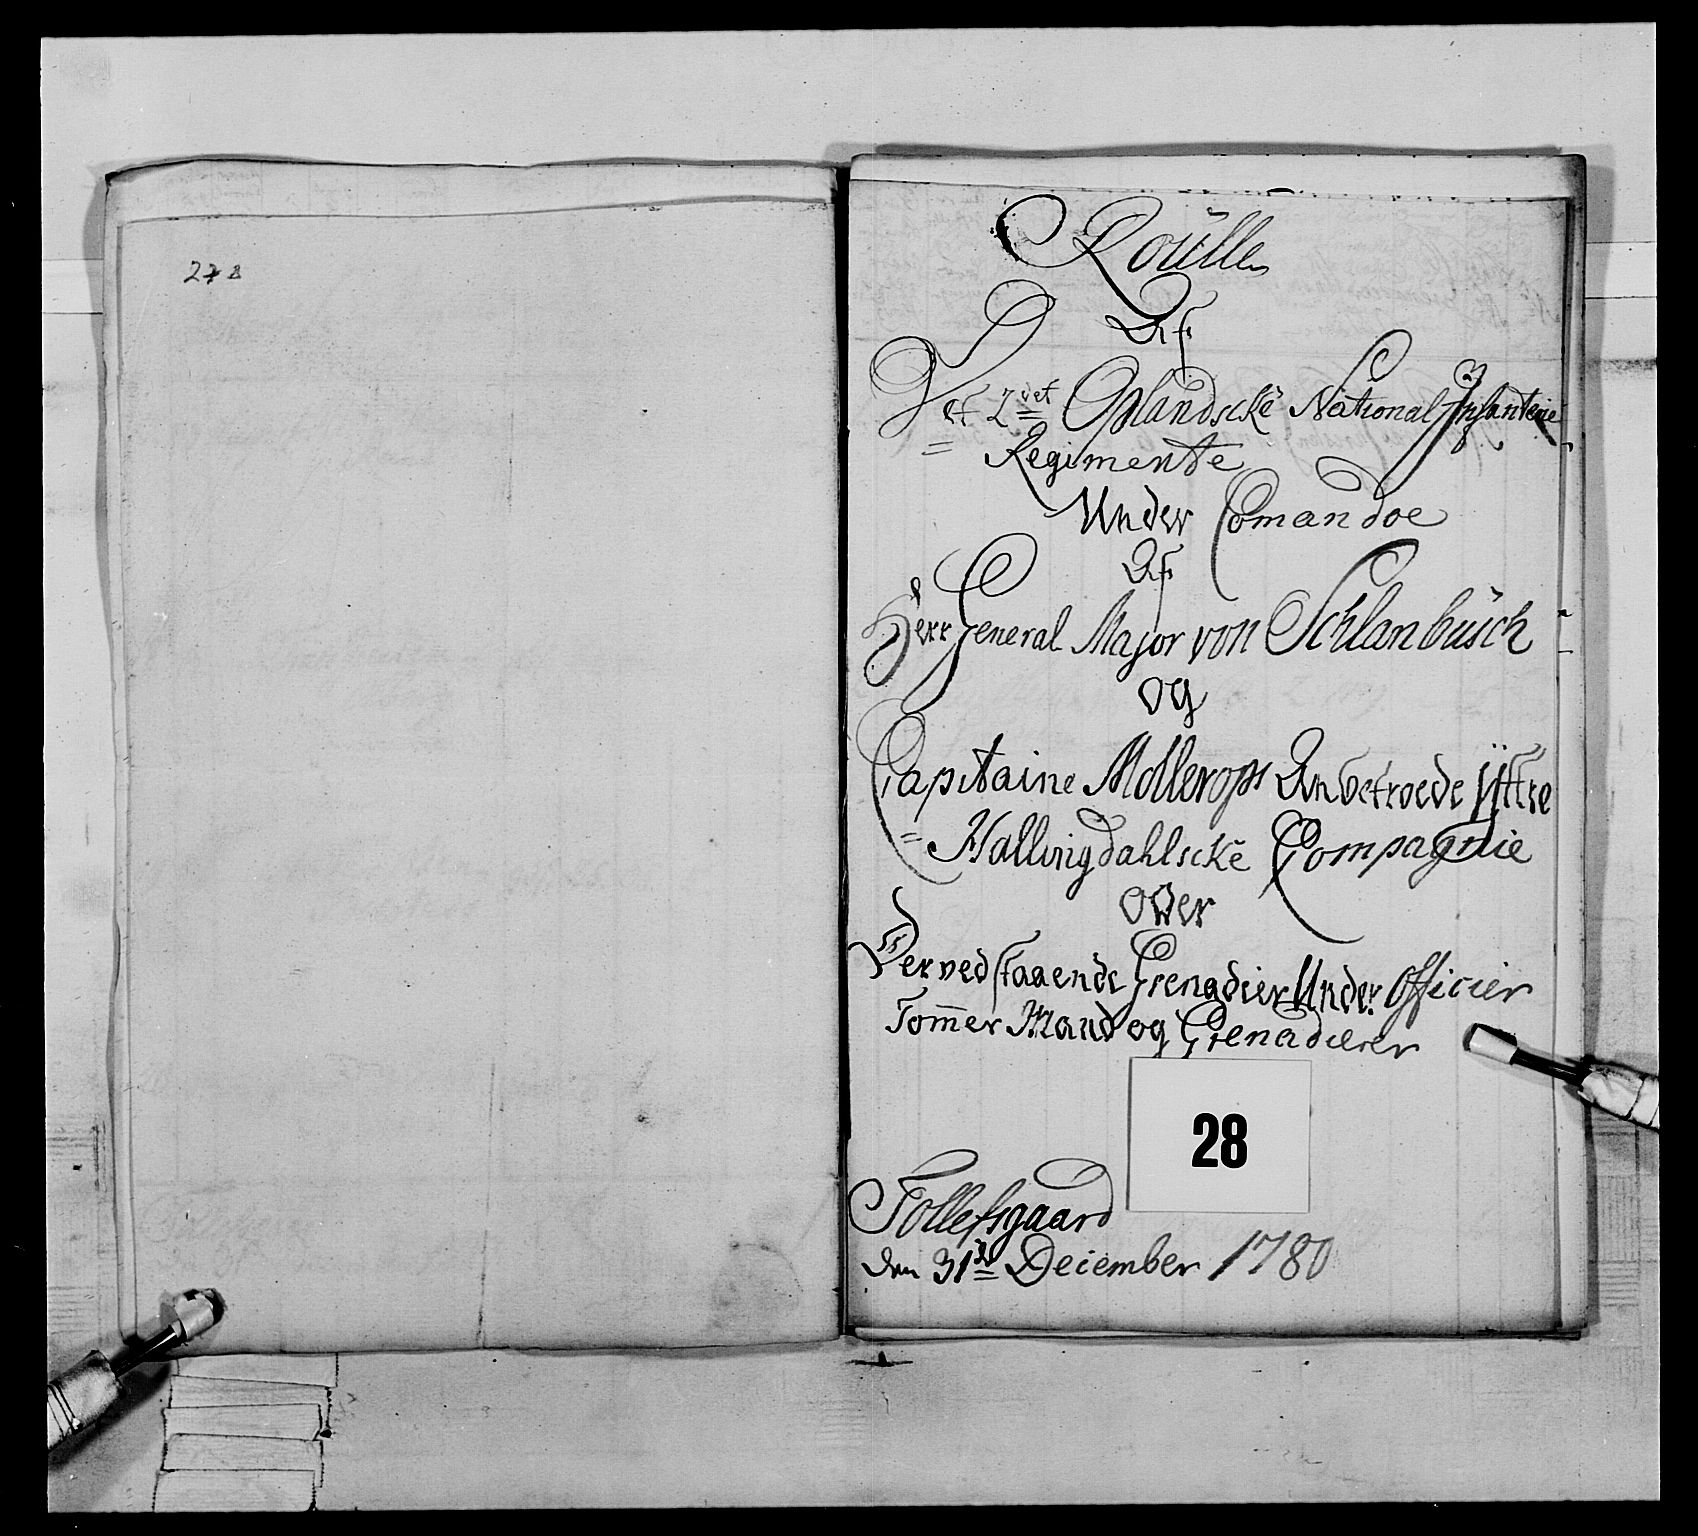 278
Roülle
Af
Det 2det Oplandscke National Infanterie
= Regimente
Under Comandoe
Af
Herr General Major von Schlanbüsch
og
Capitaine Mollerops Anbetroede Ÿttre
= Hallingdahlscke Compagnie
over
Derved staaende Grenadier Under Officier
Tom̅er Mand og Grenadierer
28
Tollefsgaard
den 31te December 1780